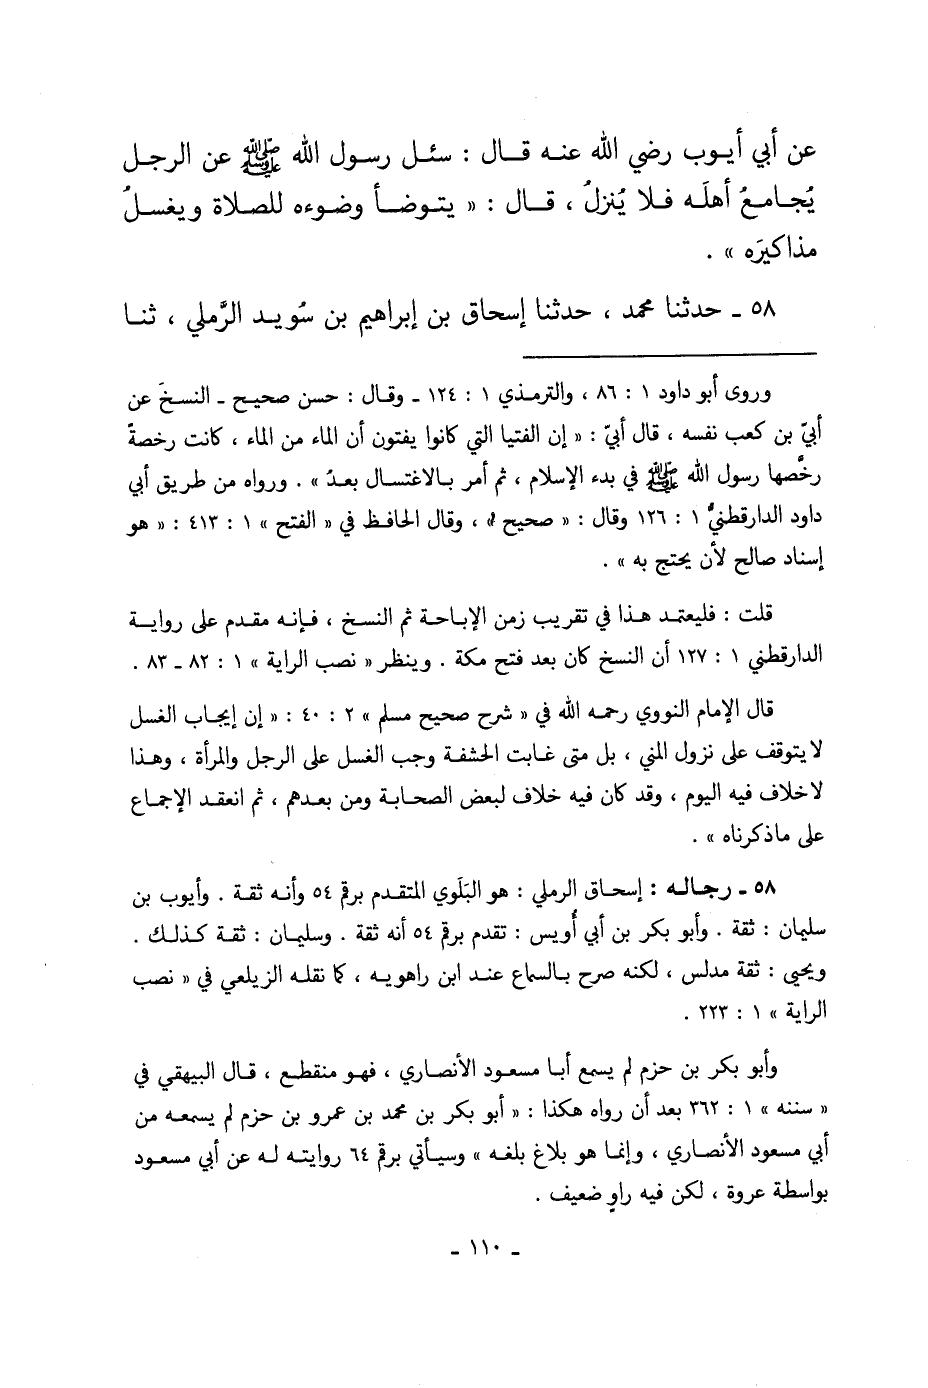 عن أبي أيوب رضي الله عنه قال : سئل رسول الله ﷺ عن الرجل
يُجامعُ أهلَه فلا يُنزلُ ، قال : « يتوضأ وضوءه للصلاة ويغسلُ
مذاكيرَه » .
٥٨ ـ حدثنا محمد ، حدثنا إسحاق بن إبراهيم بن سُويد الرَّملي ، ثنا
وروى أبو داود ١ : ٨٦ ، والترمذي ١ : ١٢٤ ـ وقال : حسن صحيح ـ النسخَ عن
أبيّ بن كعب نفسه ، قال أبيّ : « إن الفتيا التي كانوا يفتون أن الماء من الماء ، كانت رخصةً
رخَّصها رسول الله ﷺ في بدء الإسلام ، ثم أمر بالاغتسال بعدُ » . ورواه من طريق أبي
داود الدارقطنيُّ ١ : ١٢٦ وقال : « صحيح » ، وقال الحافظ في « الفتح » ١ : ٤١٣ : « هو
إسناد صالح لأن يحتج به » .
قلت : فليعتمد هذا في تقريب زمن الإباحة ثم النسخ ، فإنه مقدم على رواية
الدارقطني ١ : ١٢٧ أن النسخ كان بعد فتح مكة . وينظر « نصب الراية » ١ : ٨٢ ـ ٨٣ .
قال الإمام النووي رحمه الله في « شرح صحيح مسلم » ٢ : ٤٠ : « إن إيجاب الغسل
لا يتوقف على نزول المني ، بل متى غابت الحشفة وجب الغسل على الرجل والمرأة ، وهذا
لا خلاف فيه اليوم ، وقد كان فيه خلاف لبعض الصحابة ومن بعدهم ، ثم انعقد الإجماع
على ماذكرناه » .
٥٨ ـ رجاله : إسحاق الرملي : هو البَلَوي المتقدم برقم ٥٤ وأنه ثقة . وأيوب بن
سليمان : ثقة . وأبو بكر بن أبي أُويس : تقدم برقم ٥٤ أنه ثقة . وسليمان : ثقة كذلك .
ويحيى : ثقة مدلس ، لكنه صرح بالسماع عند ابن راهويه ، كما نقله الزيلعي في « نصب
الراية » ١ : ٢٢٣ .
وأبو بكر بن حزم لم يسمع أبا مسعود الأنصاري ، فهو منقطع ، قال البيهقي في
« سننه » ١ : ٣٦٢ بعد أن رواه هكذا : « أبو بكر بن محمد بن عمرو بن حزم لم يسمعه من
أبي مسعود الأنصاري ، وإنما هو بلاغ بلغه » وسيأتي برقم ٦٤ روايته له عن أبي مسعود
بواسطة عروة ، لكن فيه راوٍ ضعيف .
ـ ١١٠ ـ